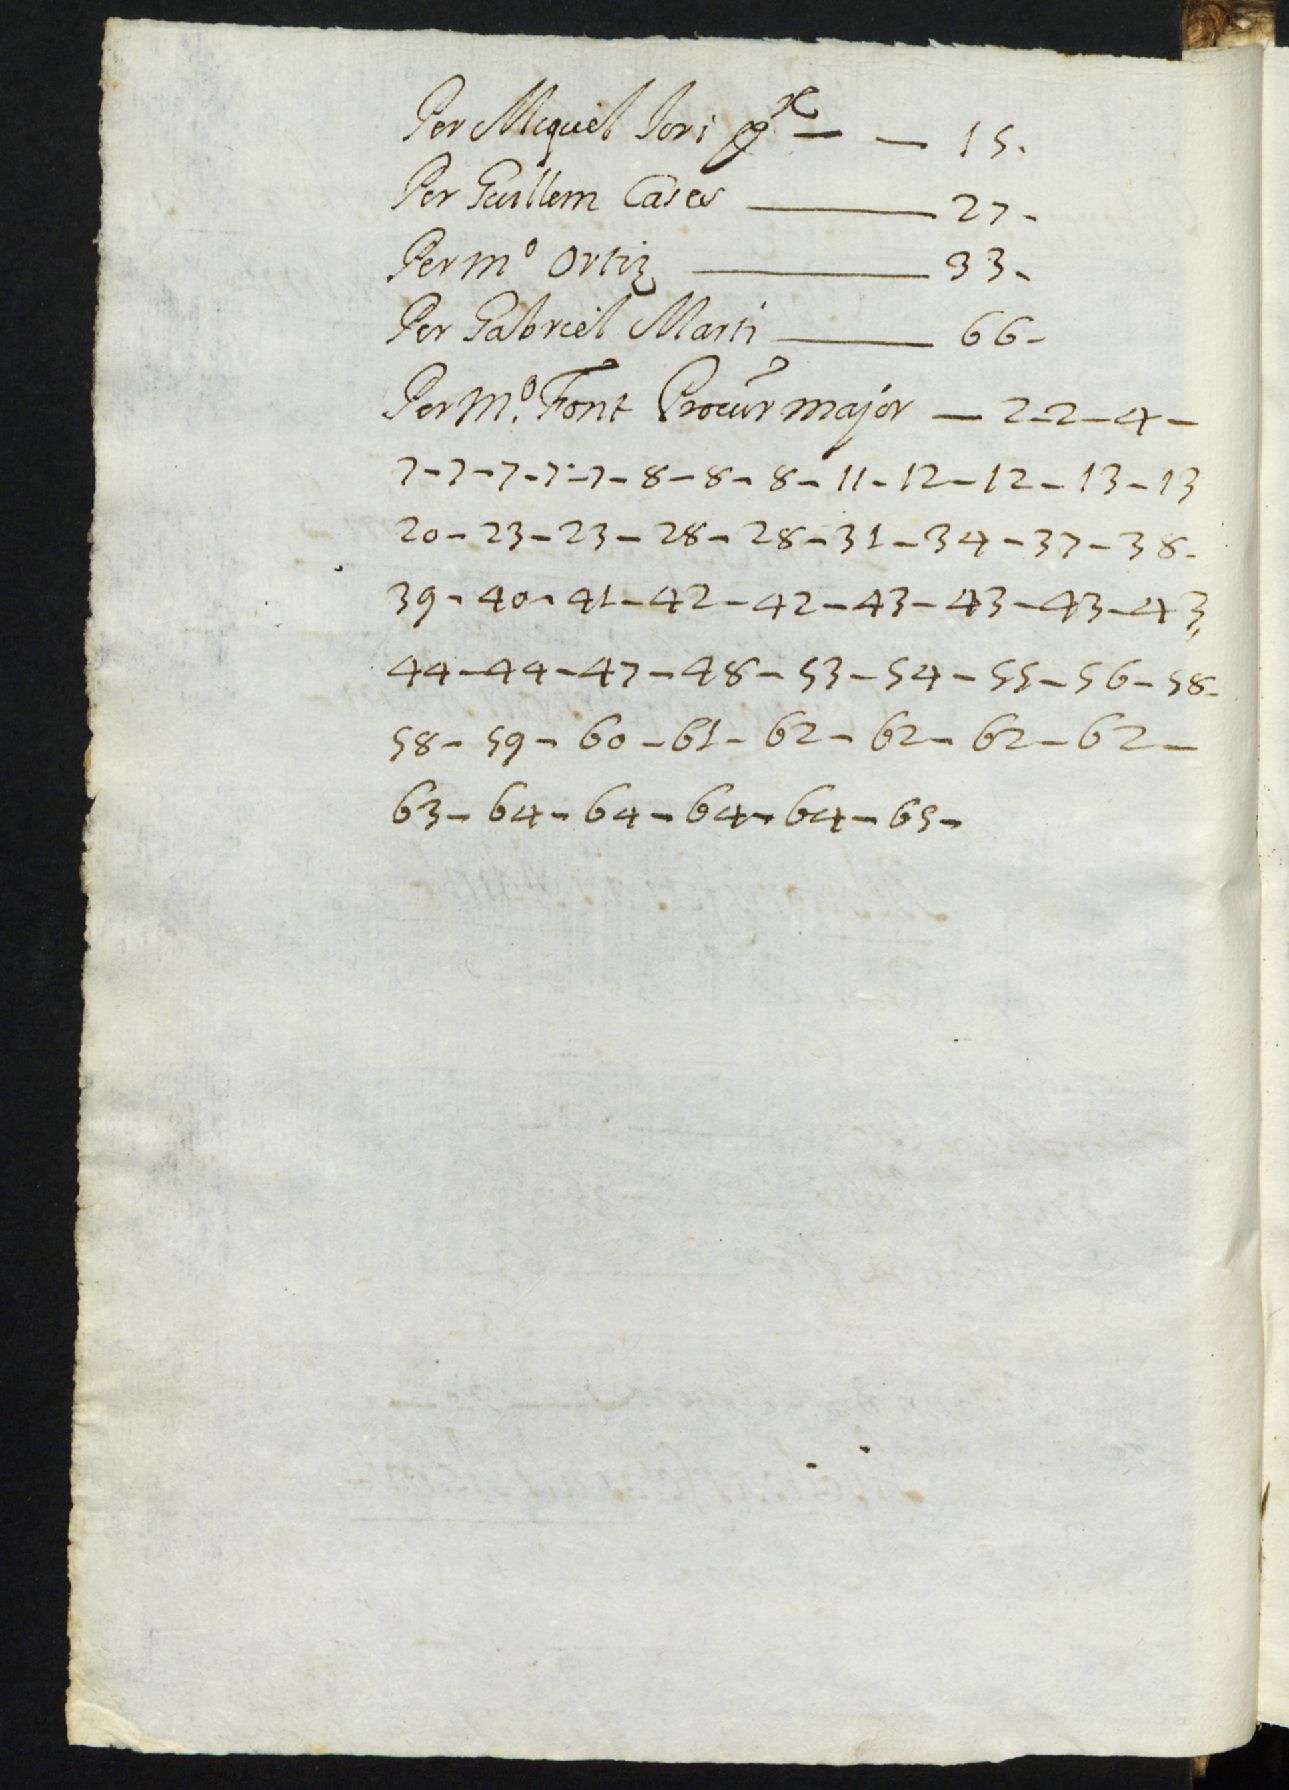 Per Miquel Jori — — 15.
Per Guillem Cases — 27-
Per Mº Ortiz — 33-
Per Gabriel Marti — 66-
Per Mº. Font Procur major — 2-2-4-
7-7-7-7-7-8-8-8-11-12-12-13-13
20-23-23-28-28-31-34-37-38-
39-40-41-42-42-43-43-43-43,
44-44-47-48-53-54-55-56-58-
58-59-60-61-62-62-62-62-
63-64-64-64-64-65-